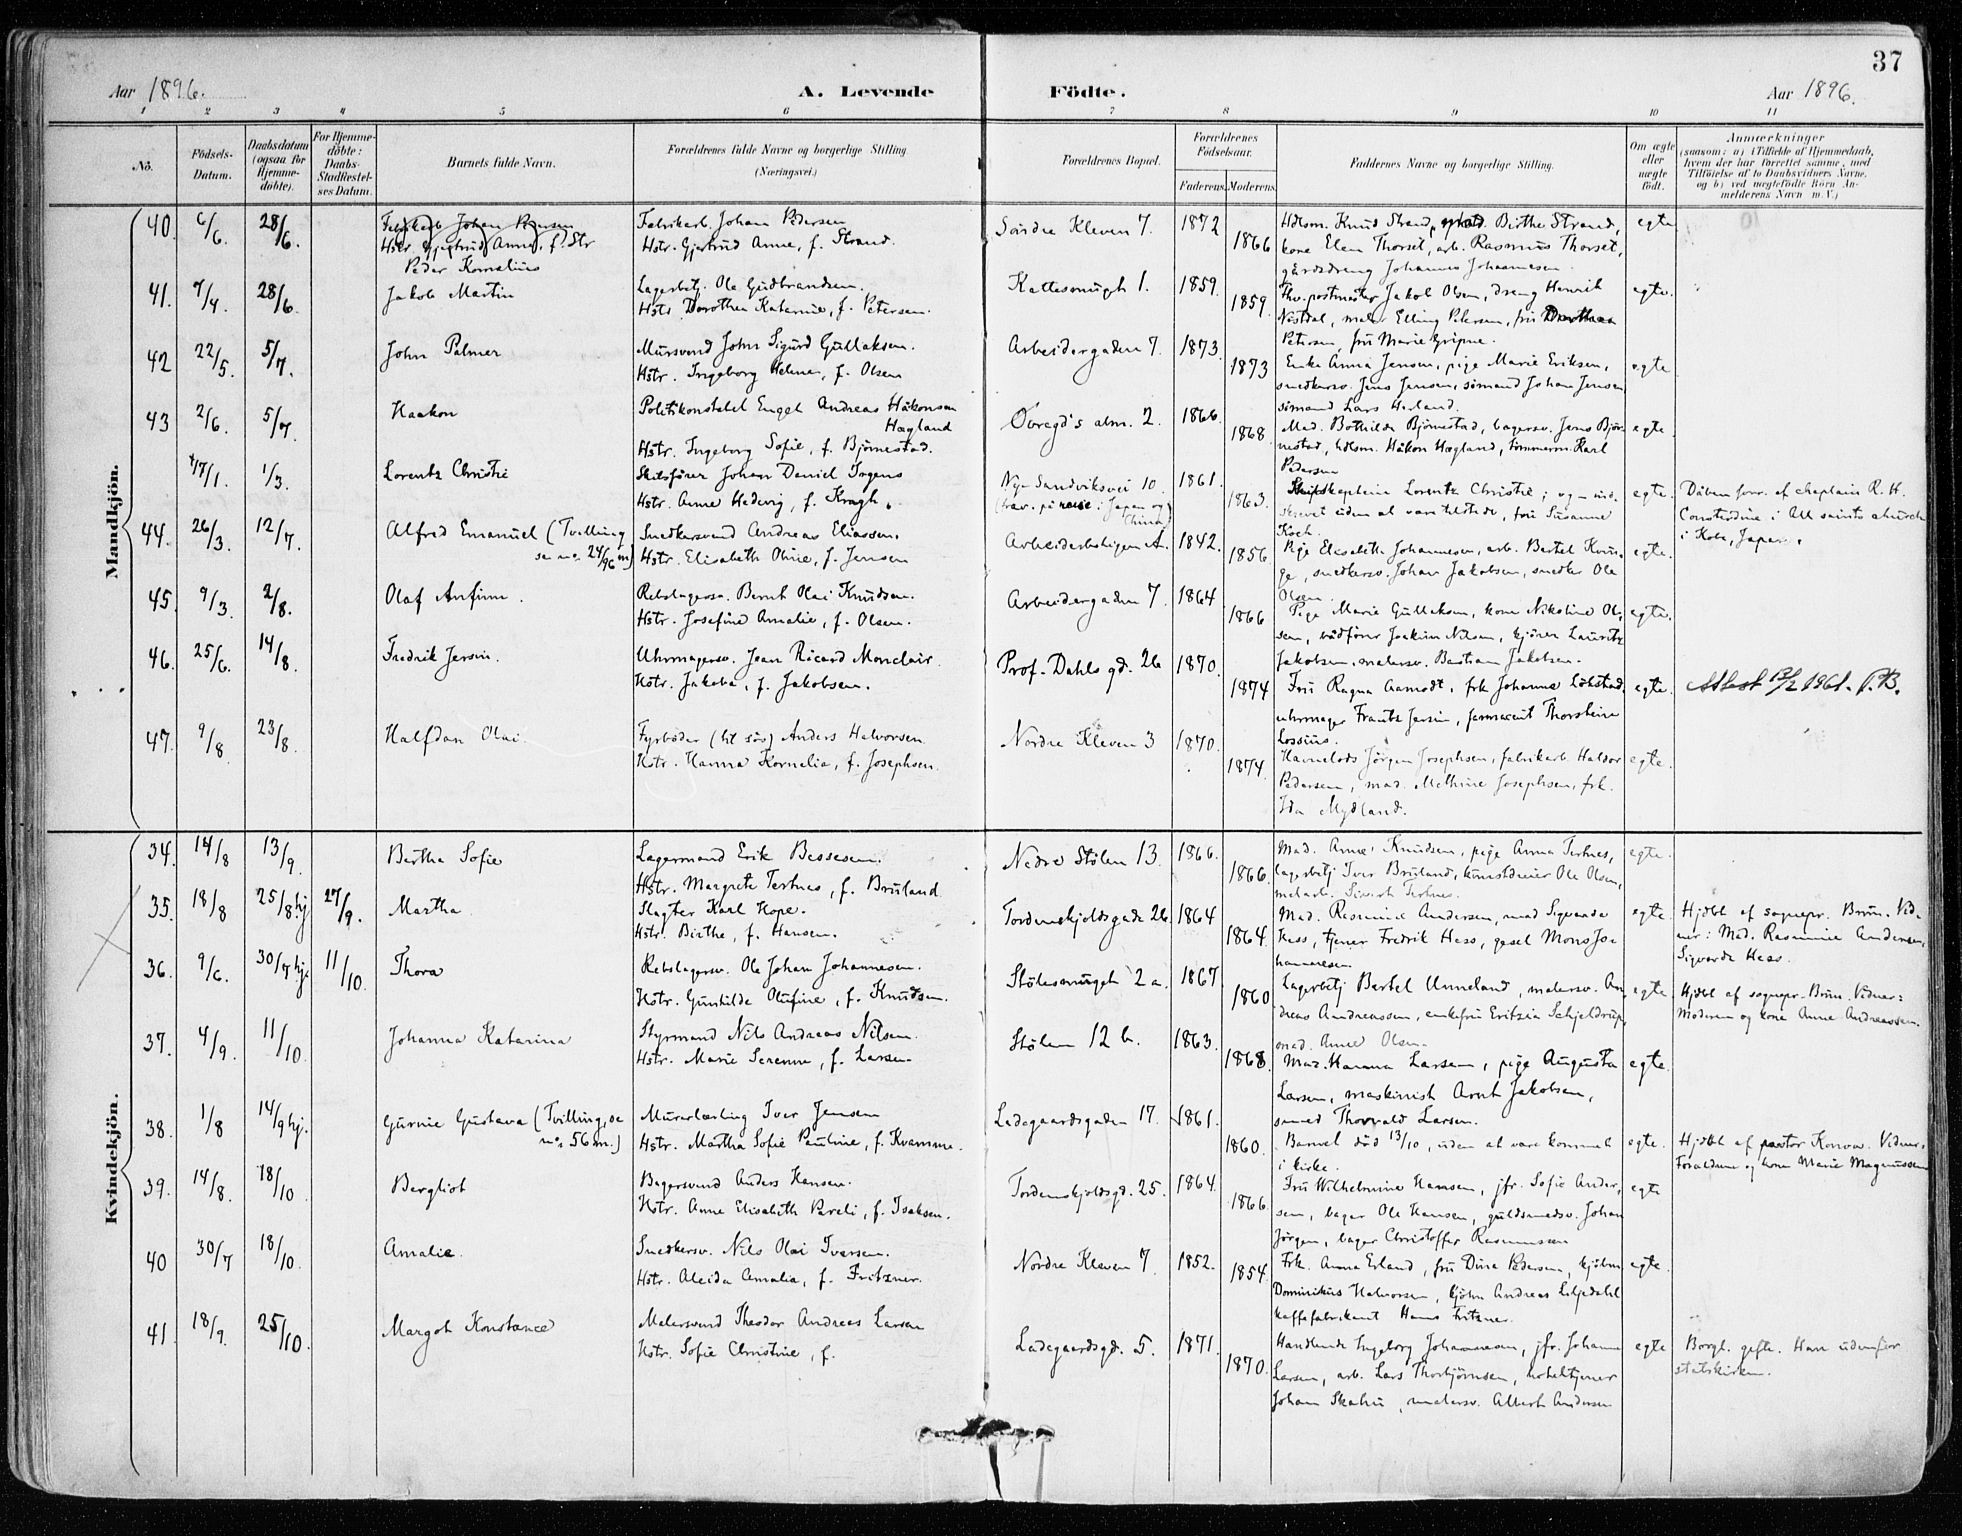 37
Aar 1896.
A. Levende Födte.
Aar 1896.
1 2 3 4 5 6 7 8 9 10 11
No.
Födsels-Datum.
Daabsdatum (ogsaa for Hjemme-döbte).
For Hjemme-döbte: Daabs-Stadfæstelses Datum.
Barnets fulde Navn.
Forældrenes fulde Navne og borgerlige Stilling (Næringsvei.)
Forældrenes Bopæl.
Forældrenes Födselsaar. Faderens. Moderens.
Faddernes Navne og borgerlige Stilling.
Om ægte eller uægte födt.
Anmærkninger
(saasom: a) i Tilfælde af Hjemmedaab, hvem der har forrettet samme, med Tilföielse af to Daabsvidners Navne, og b) ved uægtefödte Börn Anmelderens Navn m. V.)
Mandkjön.
40. 6/6. 28/6. Fabrikarb. Johan Pedersen
Hstr. Gjertrud Anne, f. Str
Peder Kornelius
Fabrikarb. Johan Pedersen
Hstr. Gjertrud Anne, f. Strand.
Søndre Kleven 7. 1872 1866
Hdlsm. Knud Strand, Birthe Strand,
kone Elen Thorset, arb. Rasmus Thorset,
gårdsdreng Johannes Johannesen.
egte
41. 7/4. 28/6. Jakob Martin
Lagerbetj. Ole Gudbrandsen.
Hstr. Dorothea Katarine, f. Petersen.
Kattesmugt 1. 1859. 1859.
Thv. postmester Jakob Olsen, dreng Henrik
Nestdal, maler Elling Petersen, fru
Petersen, fru Marie Gripne.
egte.
42 22/5. 5/7. John Palmer
Mursvend John Sigurd Gullaksen.
Hstr. Ingeborg Helene, f. Olsen
Arbeidergaden 7. 1873. 1873
Enke Anna Jensen, pige Marie Eriksen,
snedkersv. Jens Jensen, sømand Johan Jensen
sømand Lars
egte
43 2/6. 5/7. Haakon
Politikonstabel Engel Andreas Håkonsen
Hægland
Hstr. Ingeborg Sofie, f. Bjørnestad.
Øvregd's alm. 2. 1866. 1868.
Mad. Bothilde Bjørnestad, bagersv. Jens Bjør-
nestad, hdlsm. Håkon Hægland, tømmerm. Karl
Pedersen
egte.
17/1. 1/3. Lorentz Christie
Skibsfører Johan Daniel Irgens
Hstr. Anne Hedevig, f. Kragh.
Nye Sandviksvei 10.
(barn. på reise i Japan og
China)
1861. 1863.
Skibskaptein Lorentz Christie; og - ind-
skrevet uden at være tilstede, fru Susanne
Koch.
egte.
Døben forr. af chaplain R. H.
Consterdine i All saints church
i Kobe, Japan.
44. 26/3. 12/7. Alfred Emanuel (Tvilling
se no. 24/96 m)
Snedkersvend Andreas Eliassen.
Hstr. Elisabeth Oline, f. Jensen
Arbeiderboligen A. 1842. 1856
Pige Elisabeth Johannesen, arb. Bertel Kvin-
ge, snedkersv. Johan Jakobsen, snedker Ole
Olsen.
egte.
45. 9/3. 2/8. Olaf Anfinn.
Rebslagersv. Bernt Olai Knudsen.
Hstr. Josefine Amalie, f. Olsen.
Arbeidergaden 7. 1864 1866
Pige Marie Gullaksen, kone Nikoline Ol-
sen, vådfører Joakim Nilsen, kjører Lauritz
Jakobsen, malersv. Bastian Jakobsen.
egte.
46. 25/6. 14/8. Fredrik Jersin.
Uhrmagersv. Jean Ricard Monclair.
Hstr. Jakoba, f. Jakobsen.
Prof. Dahls gd. 26 1870. 1874
Fru Ragna Aamodt, frk Johanne Løkstad,
uhrmager Frantz Jersin, farmaceut Thorstein
Lossius.
egte.
Attest 13/2 1961. P.B.
47. 9/8. 23/8. Halfdan Olai.
Fyrbøder (til søs) Anders Halvorsen
Hstr. Hanna Kornelia, f. Josephsen.
Nordre Kleven 3 1870. 1874.
Havnelods Jørgen Josephsen, fabrikarb. Haldor
Pedersen, mad. Methine Josephsen, frk.
Ida Mydland.
egte.
Kvindekjön.
34. 14/8 13/9. Bertha Sofie
Lagermand Erik Bessesen.
Hstr. Margrete Tertnes, f. Bruland.
Nedre Stølen 13. 1866. 1866.
Mad. Anne Knudsen, pige Anna Tertnes,
lagerbetj Iver Bruland, Ole Olsen,
Sivert Tertnes.
egte.
35. 18/8 25/8 hj 27/9. Martha.
Slagter Karl Kope.
Hstr. Birthe, f. Hansen.
Tordenskjoldsgade 26. 1864 1864.
Mad. Rasmine Andersen, mad Sigvarda
Hess, tjener Fredrik Hess, gesel Mons Jo-
hannesen.
egte.
Hjdbt af sognepr. Brun. Vid-
ner: Mad. Rasmine Andersen,
Sigvarda Hess.
36. 9/6. 30/7 hj. 11/10. Thora
Rebslagersv. Ole Johan Johannesen.
Hstr. Gunhilde Olufine, f. Knudsen.
Stølesmuget 2 a. 1867 1860
Lagerbetj Bertel Unneland, malersv. An-
dreas Andreassen, enkefru Eritzia Schjeldrup,
mad. Anne Olsen.
egte.
Hjdbt af sognepr. Brun. Vidner:
Moderen og kone Anne Andreassen.
37. 4/9. 11/10. Johanna Katarina
Styrmand Nils Andreas Nilsen.
Hstr. Marie Serenne, f. Larsen
Stølen 12 b. 1863. 1868.
Mad. Hanna Larsen, pige Augusta
Larsen, maskinist Arnt Jakobsen,
smed Thorvald Larsen.
egte.
38. 1/8 14/9 hj. Gurine Gustava (Tvilling, se
no. 56 m.)
Murerlærling Iver Jensen
Hstr. Martha Sofie Pauline, f. Kvamme.
Ladegaardsgaden 17. 1861. 1860.
Barnet død 13/10, uden at være kommet
i kirke.
egte.
Hjdbt af pastor Konow. Vidner:
Forældrene og kone Marie Magnussen
39. 14/8. 18/10 Bergliot
Bagersvend Anders Hansen.
Hstr. Anne Elisabeth Pareli, f. Isaksen.
Tordenskjoldsgd. 25. 1864. 1866.
Fru Wilhelmine Hansen, jfr. Sofie Ander-
sen, bager Ole Hansen, guldsmedsv. Johan
Jørgen, bager Christoffer Rasmussen
egte
40 30/7 18/10. Amalie.
Snedkersv. Nils Olai Iversen.
Hstr. Aleida Amalia, f. Fritzner.
Nordre Kleven 7. 1852. 1854.
Frk. Anna Erland, fru Dina Pedersen, kjøbm
Dominikus Halvorsen, kjøbm Andreas Liljedahl
kaffefabrikant Hans Fritzner.
egte.
41. 18/9. 25/10. Margot Konstance
Malersvend Theodor Andreas Larsen
Hstr. Sofie Christine, f.
Ladegaardsgd. 5. 1871. 1870.
Handlende Ingeborg Johannesen, jfr. Johanne
Larsen, arb. Lars Thorbjørnsen, hoteltjener
Johan Skahru, malersv. Albert Andersen
egte
Borgl. gifte. Han udenfor
statskirken.